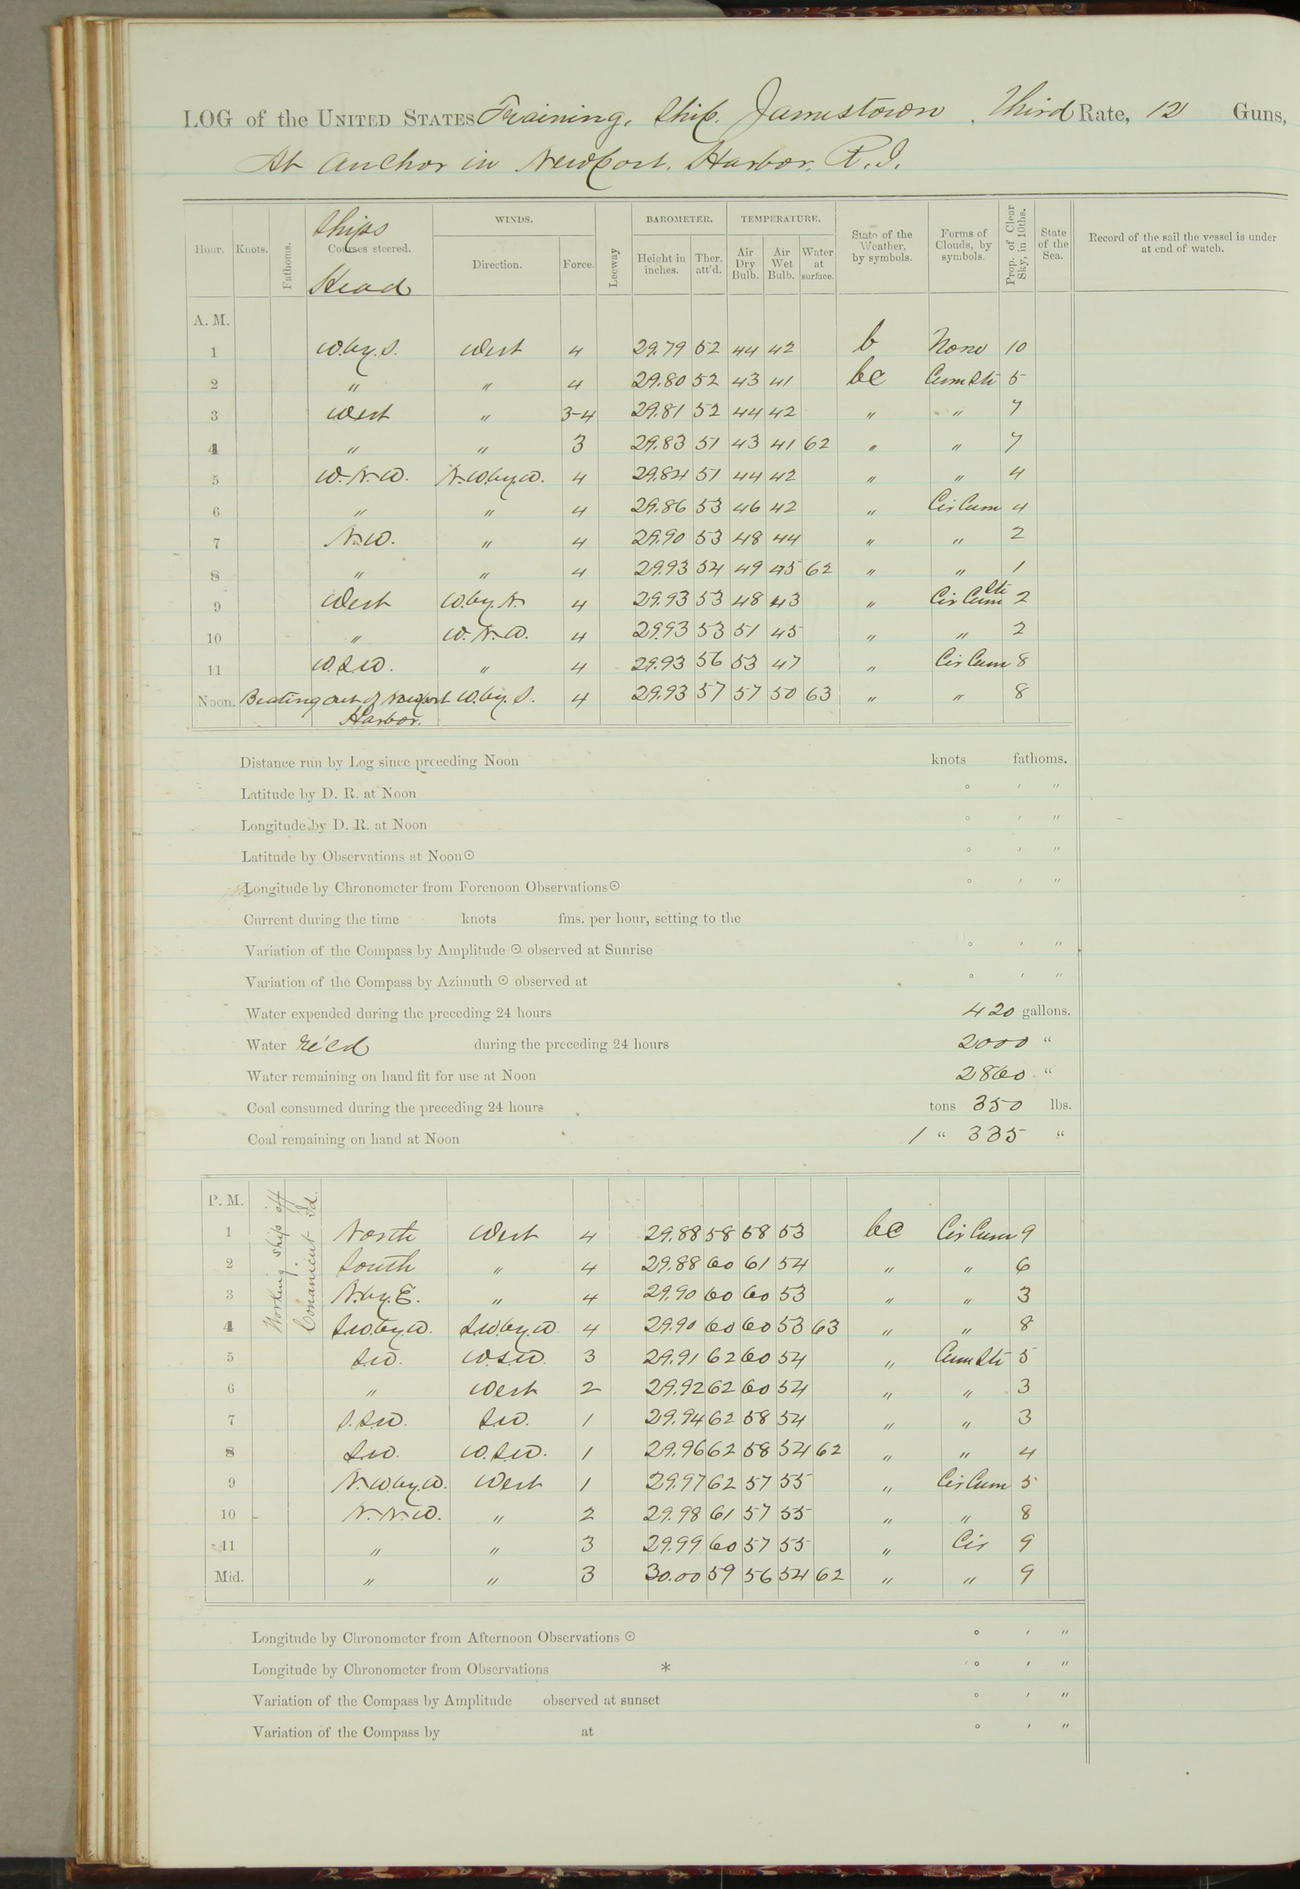 LOG of the UNITED STATES Training Ship Jamestown, Third Rate, 12 Guns,
At Anchor in Newport Harbor, R.I.
Hour. Knots. Fathoms. Ships Courses steered. Head WINDS. Direction. Force. Leeway BAROMETER. Height in inches. Ther. att'd. TEMPERATURE. Air Dry Bulb. Air Wet Bulb. Water at surface. State of the Weather, by symbols. Forms of Clouds, by symbols. Prop. of Clear Sky, in 10ths. State of the Sea. Record of the sail the vessel is under at end of watch.
A. M.
1 W.by.S. West 4 29.79 52 44 42 b None 10
2 " " 4 29.80 52 43 41 bc Cum Str 5
3 West " 3-4 29.81 52 44 42 " " 7
4 " " 3 29.83 51 43 41 62 " " 7
5 W.N.W. N.W.by.W. 4 29.84 51 44 42 " " 4
6 " " 4 29.86 53 46 42 " Cir Cum 4
7 N.W. " 4 29.90 53 48 44 " " 2
8 " " 4 29.93 54 49 45 62 " " 1
9 West W.by.N. 4 29.93 53 48 43 " Cir Cum Str 2
10 " W.N.W. 4 29.93 53 51 45 " " 2
11 W.S.W. " 4 29.93 56 53 47 " Cir Cum 8
Noon. Beating out of Newport W.by.S. 4 29.93 57 57 50 63 " " 8
Harbor.
Distance run by Log since preceding Noon knots fathoms.
Latitude by D. R. at Noon ° ' "
Longitude by D. R. at Noon ° ' "
Latitude by Observations at Noon ☉ ° ' "
Longitude by Chronometer from Forenoon Observations ☉ ° ' "
Current during the time knots fms. per hour, setting to the
Variation of the Compass by Amplitude ☉ observed at Sunrise ° ' "
Variation of the Compass by Azimuth ☉ observed at ° ' "
Water expended during the preceding 24 hours 420 gallons.
Water Rec'd during the preceding 24 hours 2000 "
Water remaining on hand fit for use at Noon 2860 "
Coal consumed during the preceding 24 hours tons 350 lbs.
Coal remaining on hand at Noon 1 " 335 "
P. M.
Working ship off
Conanicut Id.
1 North West 4 29.88 58 58 53 bc Cir Cum 9
2 South " 4 29.88 60 61 54 " " 6
3 N.by.E. " 4 29.90 60 60 53 " " 3
4 S.W.by.W. S.W.by.W. 4 29.90 60 60 53 63 " " 8
5 S.W. W.S.W. 3 29.91 62 60 54 " Cum Str 5
6 " West 2 29.92 62 60 54 " " 3
7 S.S.W. S.W. 1 29.94 62 58 54 " " 3
8 S.W. W.S.W. 1 29.96 62 58 54 62 " " 4
9 N.W.by.W. West 1 29.97 62 57 55 " Cir Cum 5
10 N.N.W. " 2 29.98 61 57 55 " " 8
11 " " 3 29.99 60 57 55 " Cir 9
Mid. " " 3 30.00 59 56 54 62 " " 9
Longitude by Chronometer from Afternoon Observations ☉ ° ' "
Longitude by Chronometer from Observations * ° ' "
Variation of the Compass by Amplitude observed at sunset ° ' "
Variation of the Compass by at ° ' "